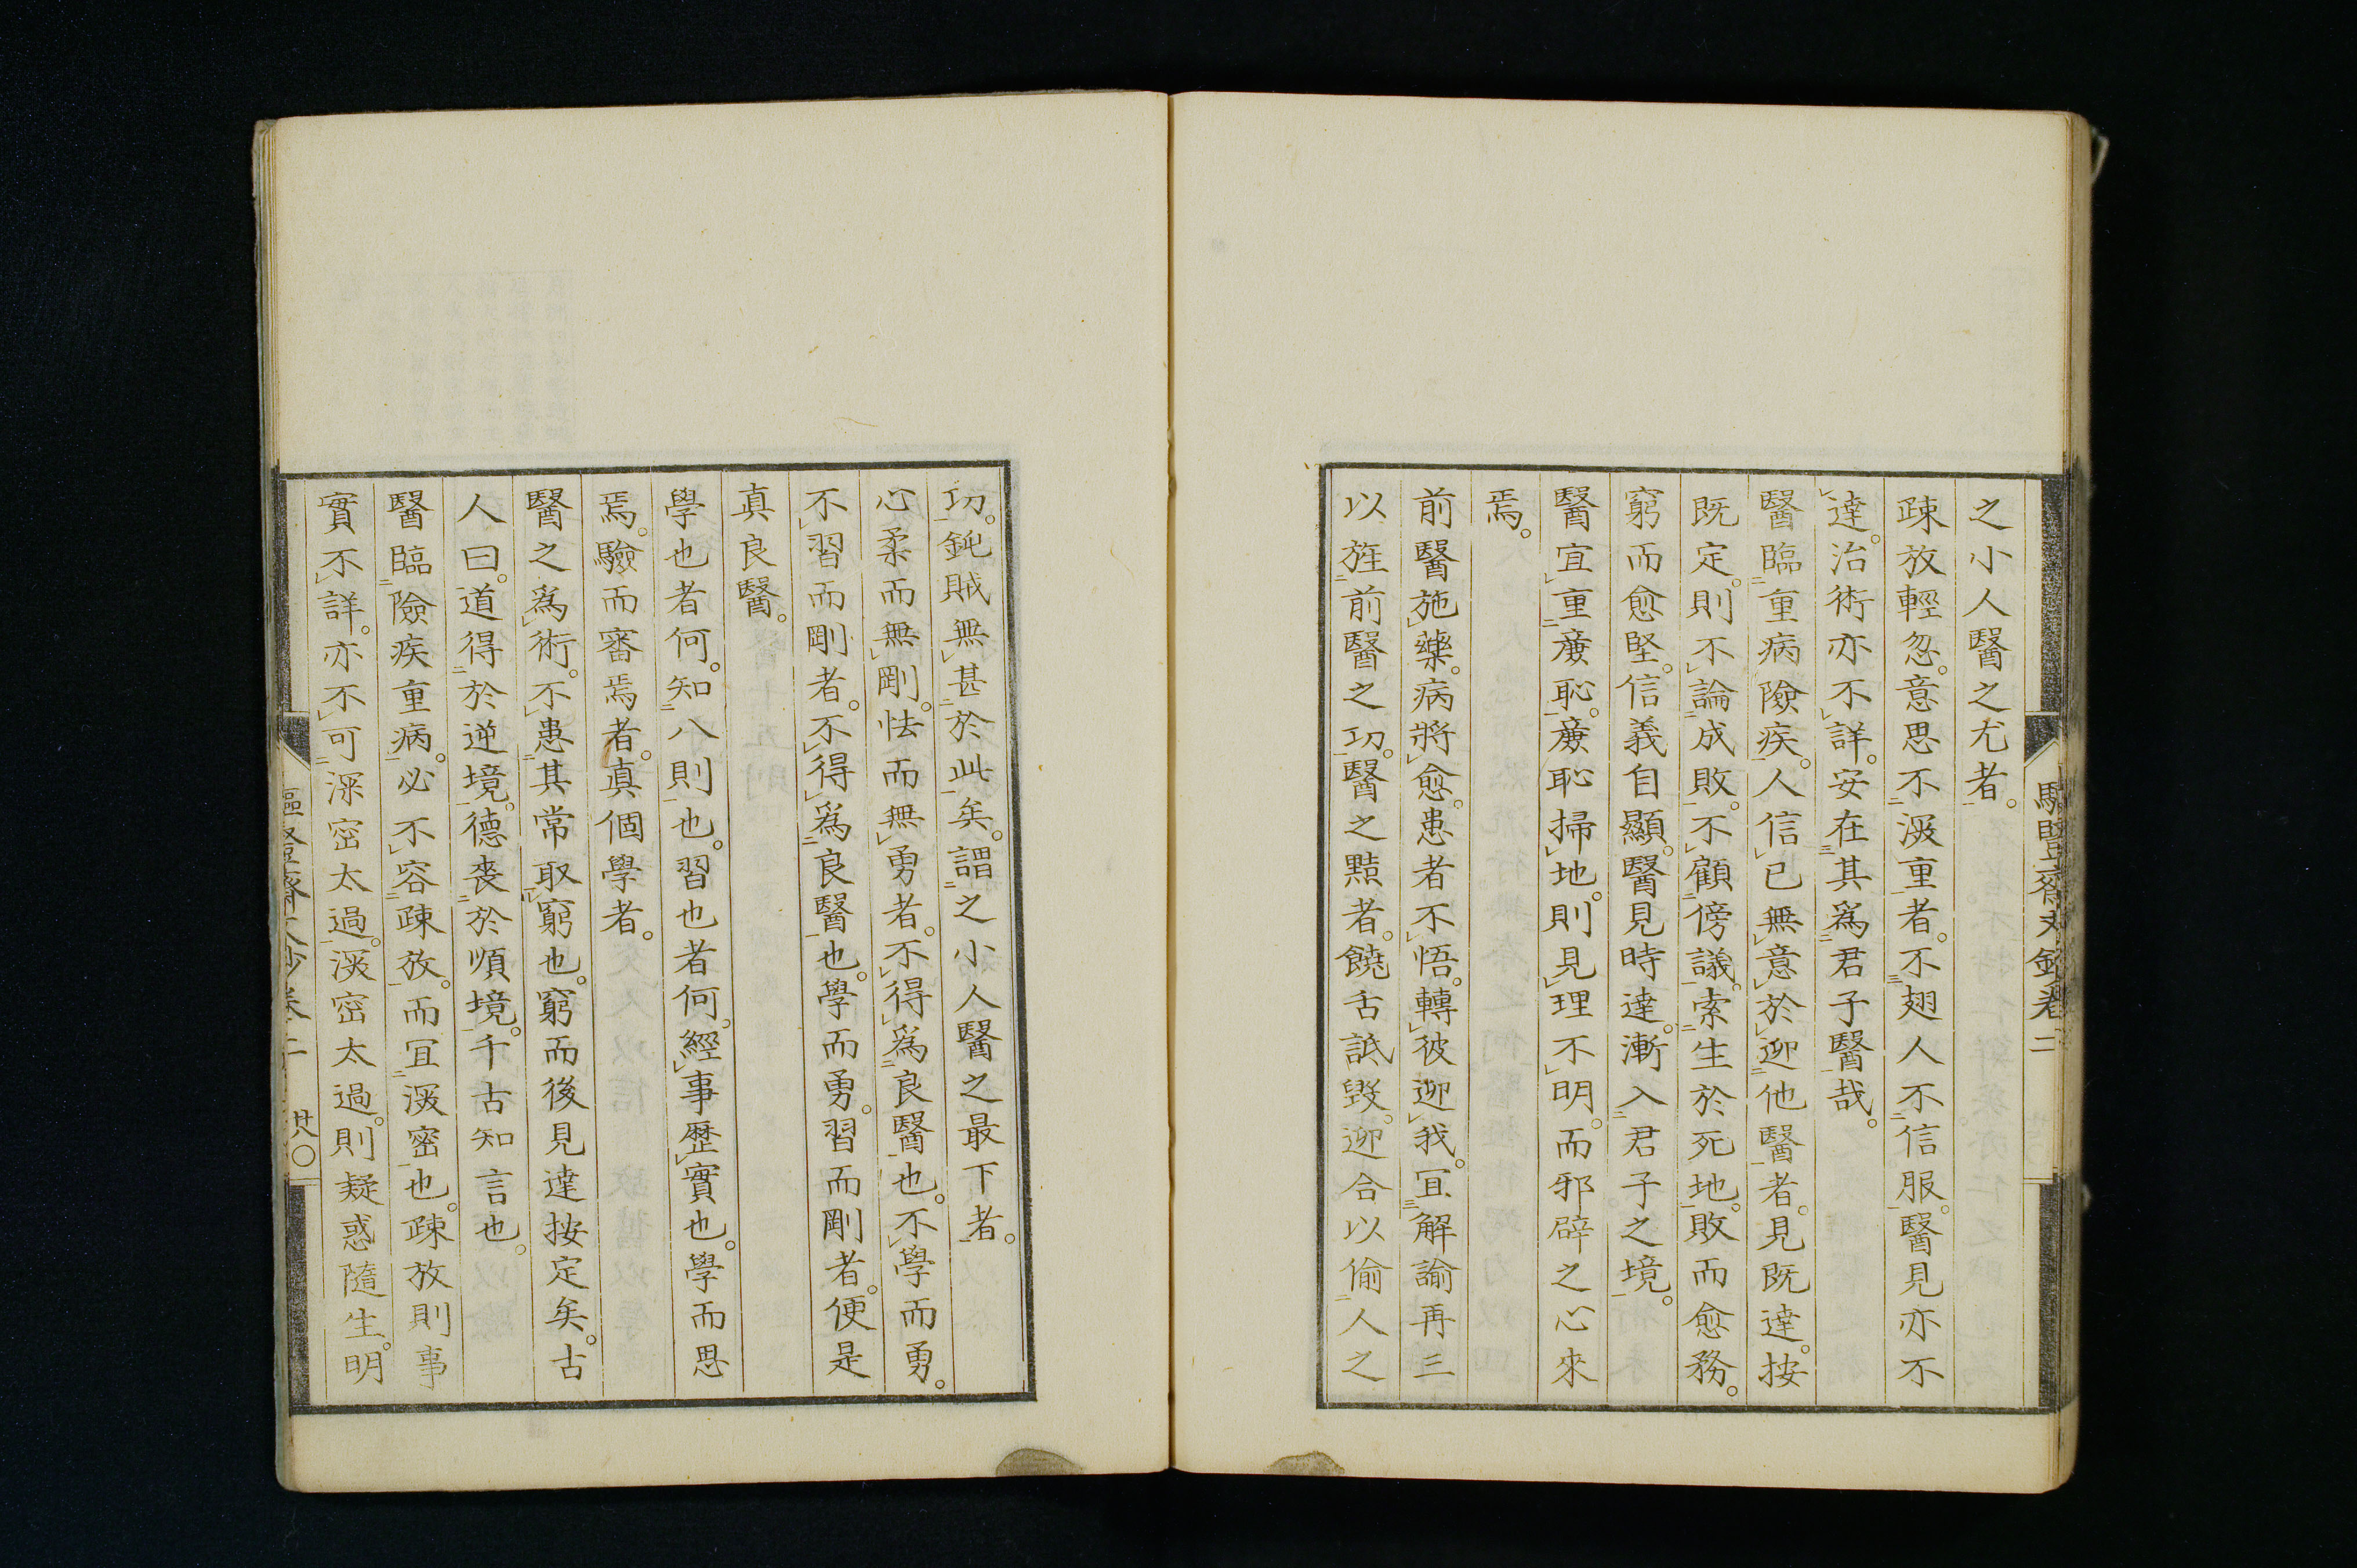 之小人醫之尤者。
疎放輕忽。意思不深重者。不翅人不信服。醫見亦不
達。治術亦不詳。安在其爲君子醫哉。
醫臨重病險疾。人信已無意於迎他醫者。見既達。按
既定。則不論成敗。不顧傍議。索生於死地。敗而愈務。
窮而愈堅。信義自顯。醫見時達。漸入君子之境。
醫宜重廉恥。廉恥掃地。則見理不明。而邪辟之心來
焉。
前醫施藥。病將愈。患者不悟。轉彼迎我。宜解諭再三
以旌前醫之功。醫之黠者。饒舌詆毀。迎合以偷人之
功。鈍賊無甚於此矣。謂之小人醫之最下者。
心柔而無剛。怯而無勇者。不得爲良醫也。不學而勇。
不習而剛者。不得爲良醫也。學而勇。習而剛者。便是
真良醫。
學也者何。知八則也。習也者何。經事歷實也。學而思
焉。驗而審焉者。真個學者。
醫之爲術。不患其常取窮也。窮而後見達按定矣。古
人曰。道得於逆境。德喪於順境。千古知言也。
醫臨險疾重病。必不容疎放。而宜深密也。疎放則事
實不詳。亦不可深密太過。深密太過。則疑惑隨生。明
醫齋文鈔卷二 廿八